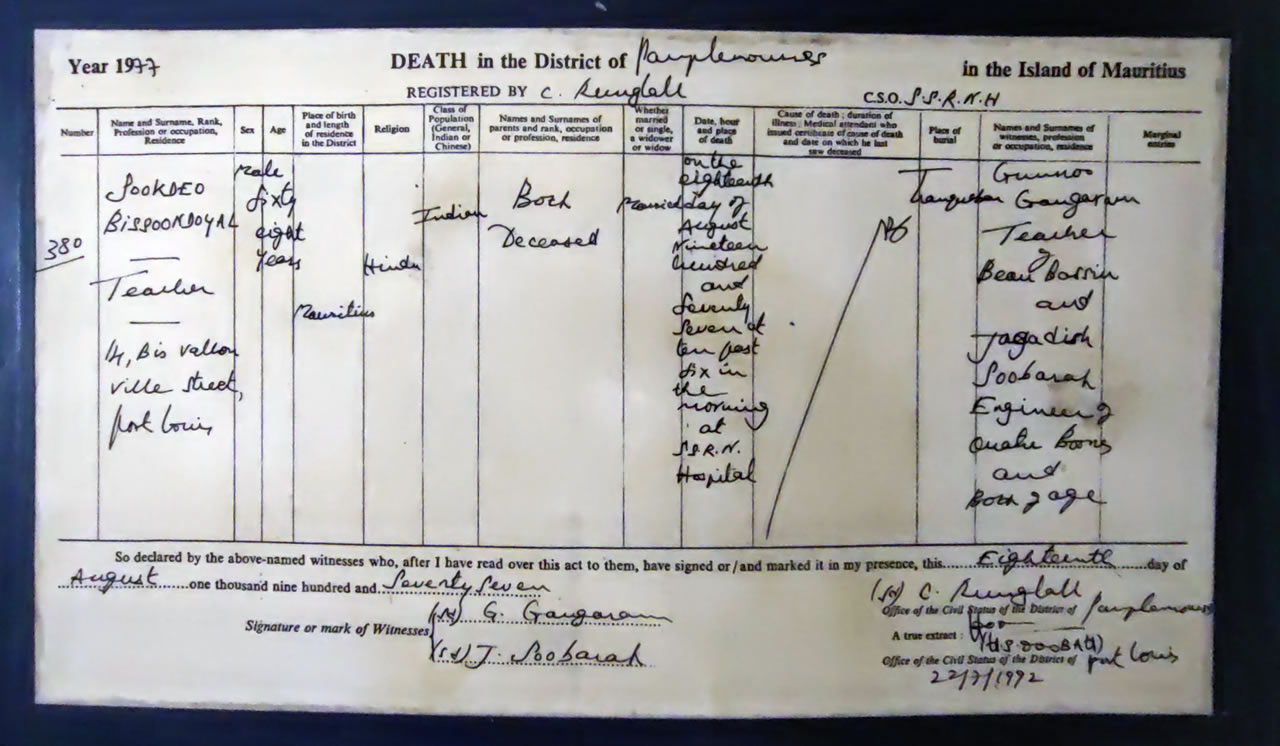 Year 1977
DEATH in the District of Pamplemousses
in the Island of Mauritius
REGISTERED BY C. Runglall
C.S.O. S.S.R.N.H
Number
Name and Surname, Rank,
Profession or occupation,
Residence
Sex
Age
Place of birth
and length
of residence
in the District
Religion
Class of
Population
(General,
Indian or
Chinese)
Names and Surnames of
parents and rank, occupation
or profession, residence
Whether
married
or single,
a widower
or widow
Date, hour
and place
of death
Cause of death; duration of
illness; Medical attendant who
issued certificate of cause of death
and date on which he last
saw deceased
Place of
burial
Names and Surnames of
witnesses, profession
or occupation, residence
Marginal
entries
380
SOOKDEO
BISSOONDOYAL
Teacher
14, Bis Vallon
Ville Street,
Port Louis
Male
Sixty
eight
Years
Mauritius
Hindu
Indian
Both
Deceased
Married
on the
eighteenth
day of
August
Nineteen
hundred
and
Seventy
Seven at
ten past
six in
the
morning
at
S.S.R.N.
Hospital
Gunnoo
Gangaram
Teacher
of
Beau Bassin
and
Jagadish
Soobarah
Engineer of
Quatre Bornes
and
Both of age
So declared by the above-named witnesses who, after I have read over this act to them, have signed or/and marked it in my presence, this Eighteenth day of
August one thousand nine hundred and Seventy Seven
Signature or mark of Witnesses
(sd) G. Gangaram
(sd) J. Soobarah
(sd) C. Runglall
Office of the Civil Status of the District of Pamplemousses
A true extract:
Office of the Civil Status of the District of Port Louis
22/7/1992